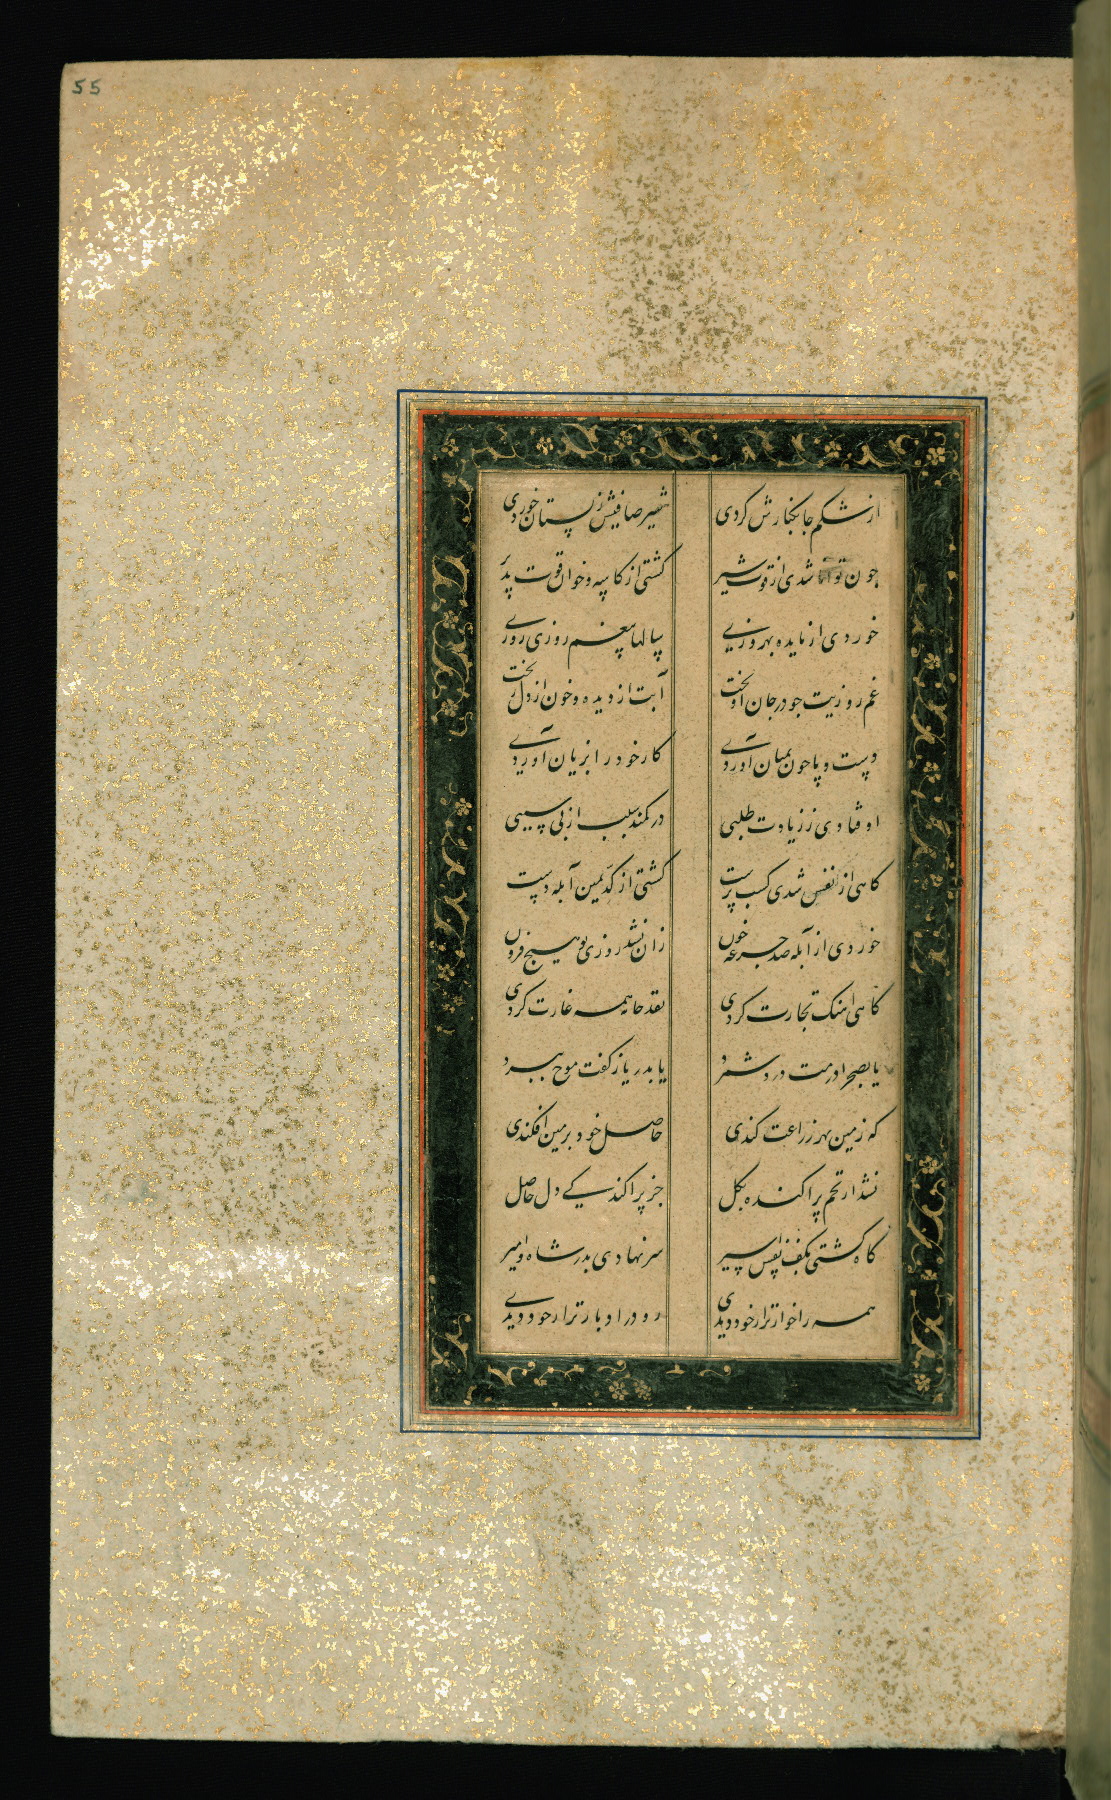 55
از شکم جا بکنارش کردی شیر صافیش ز پستان خوردی
چون توانا شدی از قوت شیر گشتی از کاسه و خوان قوت پذیر
خوردی از مایده بهروزی سالها بیغم روزی روزی
غم روزیت چو در جان آویخت آبت از دیده و خون از دل ریخت
دست و پا چون بمیان آوردی کار خود را بزیان آوردی
اوفتادی ز زیادت طلبی در کمند سبب از بی سببی
گاهی از نفس شدی کسب پرست گشتی از کدّ یمین آبله دست
خوردی از آبله صد جرعه خون زان نشد روزی تو هیچ فزون
گاهی آهنگ تجارت کردی نقد خانه همه غارت کردی
یا بصحرا درمت دزد شمرد یا بدریا ز کفت موج ببرد
گه زمین بهر زراعت کندی حاصل خود بزمین افکندی
نشد از تخم پراکنده بگل جز پراکندگی دل حاصل
گاه گشتی بکف نفس اسیر سر نهادی بدر شاه و امیر
همه را خوارتر از خود دیدی رو در ادبارتر از خود دیدی